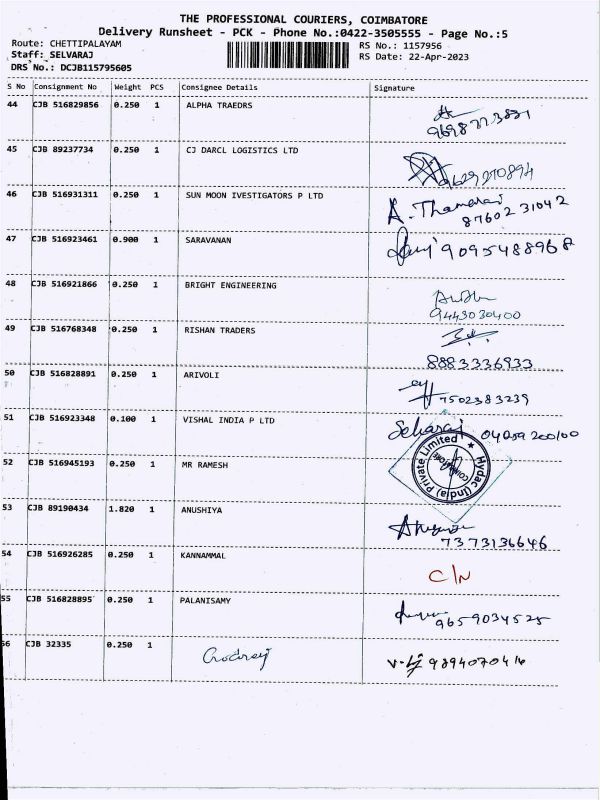 THE PROFESSIONAL COURIERS, COIMBATORE
Delivery Runsheet - PCK - Phone No.:0422-3505555 - Page No.:5
Route: CHETTIPALAYAM RS No.: 1157956
Staff: SELVARAJ RS Date: 22-Apr-2023
DRS No.: DCJB115795605
S No Consignment No Weight PCS Consignee Details Signature
44 CJB 516829856 0.250 1 ALPHA TRAEDRS
45 CJB 89237734 0.250 1 CJ DARCL LOGISTICS LTD
9629270894
46 CJB 516931311 0.250 1 SUN MOON IVESTIGATORS P LTD A. Thamarai
87602 31042
47 CJB 516923461 0.900 1 SARAVANAN 9095488968
48 CJB 516921866 0.250 1 BRIGHT ENGINEERING
9443030400
49 CJB 516768348 0.250 1 RISHAN TRADERS
8883336933
50 CJB 516828891 0.250 1 ARIVOLI
7502383239
51 CJB 516923348 0.100 1 VISHAL INDIA P LTD
52 CJB 516945193 0.250 1 MR RAMESH
Hydac (India) Private Limited
COIMBATORE
53 CJB 89190434 1.820 1 ANUSHIYA
7373136646
54 CJB 516926285 0.250 1 KANNAMMAL
C/N
55 CJB 516828895 0.250 1 PALANISAMY
9659034525
56 CJB 32335 0.250 1 Godrej